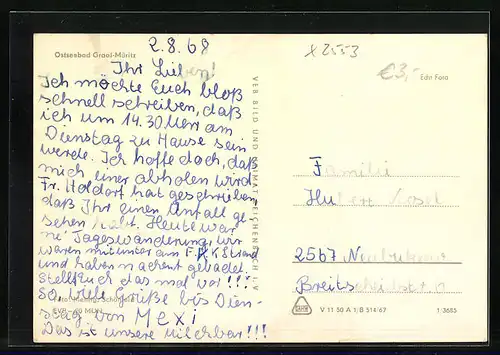 2.8.68
Ostseebad Graal-Müritz
Ihr Lieben!
Ich möchte Euch bloß
schnell schreiben, daß
ich um 14.30 Uhr am
Dienstag zu Hause sein
werde. Ich hoffe doch, daß
mich einer abholen wird.
Fr. Holdorf hat geschrieben,
daß Ihr einen Unfall ge-
sehen habt. Heute war
ne' Tageswanderung, wir
waren mitunter am F.K.K. Strand
und haben nackend gebadet.
Stellt Euch das mal vor!!!
So, viele Grüße bis Diens-
tag von Mexi
Das ist unsere Milchbar!!!
VEB BILD UND HEIMAT REICHENBACH I. V.
X 2553
€3,-
Echt Foto
Familie
Hubert
2567
V 11 50 A 1/B 514/67
1/3685